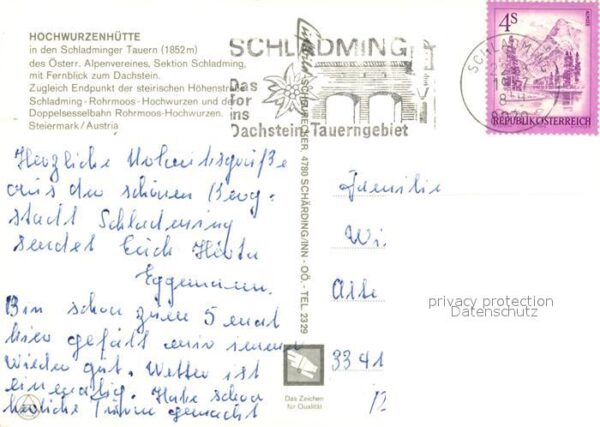 HOCHWURZENHÜTTE
in den Schladminger Tauern (1852 m)
des Österr. Alpenvereines, Sektion Schladming,
mit Fernblick zum Dachstein.
Zugleich Endpunkt der steirischen Höhenstr
Schladming - Rohrmoos - Hochwurzen und der
Doppelsesselbahn Rohrmoos - Hochwurzen.
Steiermark / Austria
SCHLADMING
Das
Tor
ins
Dachstein-Tauerngebiet
SCHLADMING
4S
REPUBLIK ÖSTERREICH
4780 SCHÄRDING/INN - OÖ. - TEL. 2329
Herzliche Urlaubsgrüße
aus der schönen Berg-
stadt Schladming
sendet Euch
Eggemann.
Bin schon zum 5 mal
hier gefällt mir immer
wieder gut. Wetter ist
einmalig. Habe schon
herrliche Touren gemacht
Familie
Wi
Alte
3341
privacy protection
Datenschutz
Das Zeichen
für Qualität